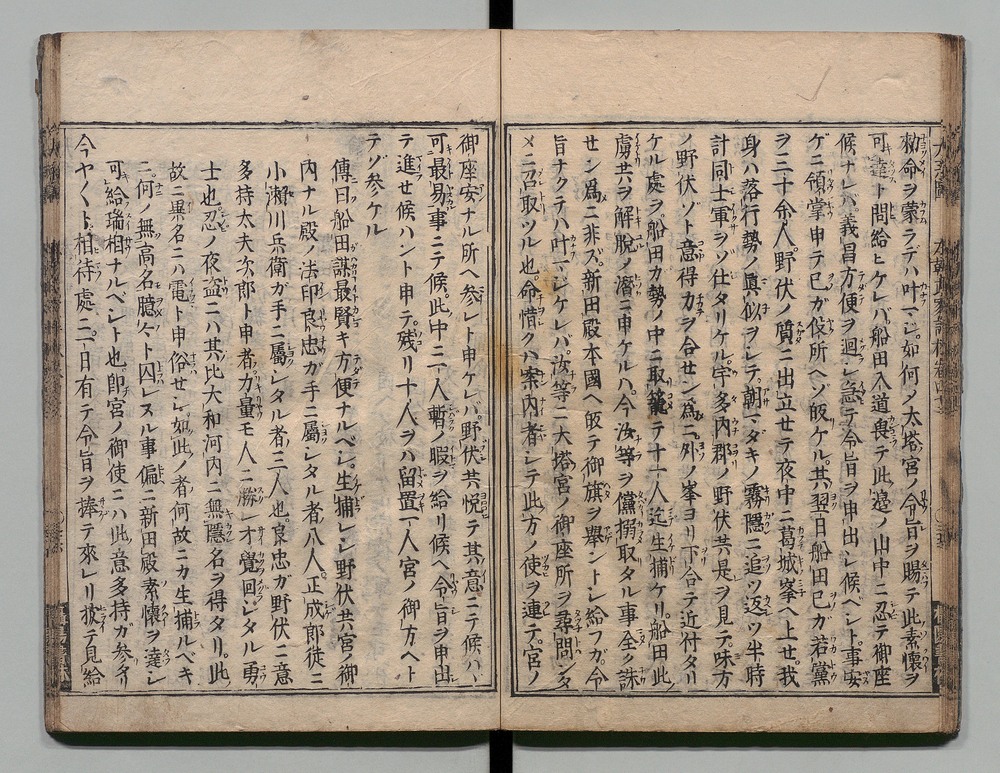 勅命ヲ蒙ラデハ叶マジ。如何ノ太塔宮ノ令旨ヲ賜テ此素懷ヲ
可達ト問給ヒケレバ船田入道畏テ此邉ノ山中ニ忍テ御座
候ナレバ義昌方便ヲ廻シ急テ令旨ヲ申出シ候ベシト。事安
ゲニ領掌申テ己ガ役所ヘゾ皈ケル。其翌日船田己ガ若黨
ヲ三十余人野伏ノ質ニ出立セテ夜中ニ葛城峯ヘ上セ我
身ハ落行勢ノ真似ヲシテ。朝マダキノ霧隱ニ追ツ返ツ半時
計同士軍ヲゾ仕タリケル。宇多内郡ノ野伏共是ヲ見テ。味方
ノ野伏ゾト意得カヲ合セン為ニ。外ノ峯ヨリ下合テ近付タリ
ケル處ヲ。船田カ勢ノ中ニ取籠テ十一人迄生捕ケリ。船田此
虜共ヲ解脱ノ潛ニ申ケルハ。今汝等ヲ儻搦取タル事全ク誅
センガ爲ニ非ス。新田殿本國ヘ皈テ御旗ヲ舉ントシ給フガ。令
旨ナクテハ叶マジケレバ。汝等ニ大塔宮ノ御座所ヲ尋問ンタ
メニ召取ツル也。命惜クハ案内者シテ此方ノ使ヲ連テ。宮ノ
御座安ナル所ヘ参レト申ケレバ。野伏共悦テ其意ニテ候ハヾ
可最易事ニテ候。此中ニ一人暫ノ暇ヲ給リ候ヘ令旨ヲ申出
テ進セ候ハント申テ。残リ十人ヲハ留置一人宮ノ御方ヘト
テゾ参ケル
傳曰船田謀最賢キ方便ナルベシ。生捕レシ野伏共宮ノ御
内ナル殿ノ法印良忠ガ手ニ屬シタル者八人。正成郎徒ニ
小瀬川兵衛ガ手ニ屬シタル者三人也。良忠ガ野伏ニ意
多持太夫次郎ト申者。力量モ人ニ勝レ才覺回シタル勇
士也。忍ノ夜盗ニハ其比大和河内ニ無隱名ヲ得タリ。此
故ニ異名ニハ電ト申俗セシ。如此ノ者何故ニカ生捕ルベキ
ニ。何ノ無高名臆々ト囚レスル事偏ニ新田殿素懷ヲ達シ
可給瑞相ナルベシト也。即宮ノ御使ニハ此意多持ガ参タリ
今ヤ〱ト相待處ニ。一日有テ令旨ヲ捧テ來レリ披テ見給